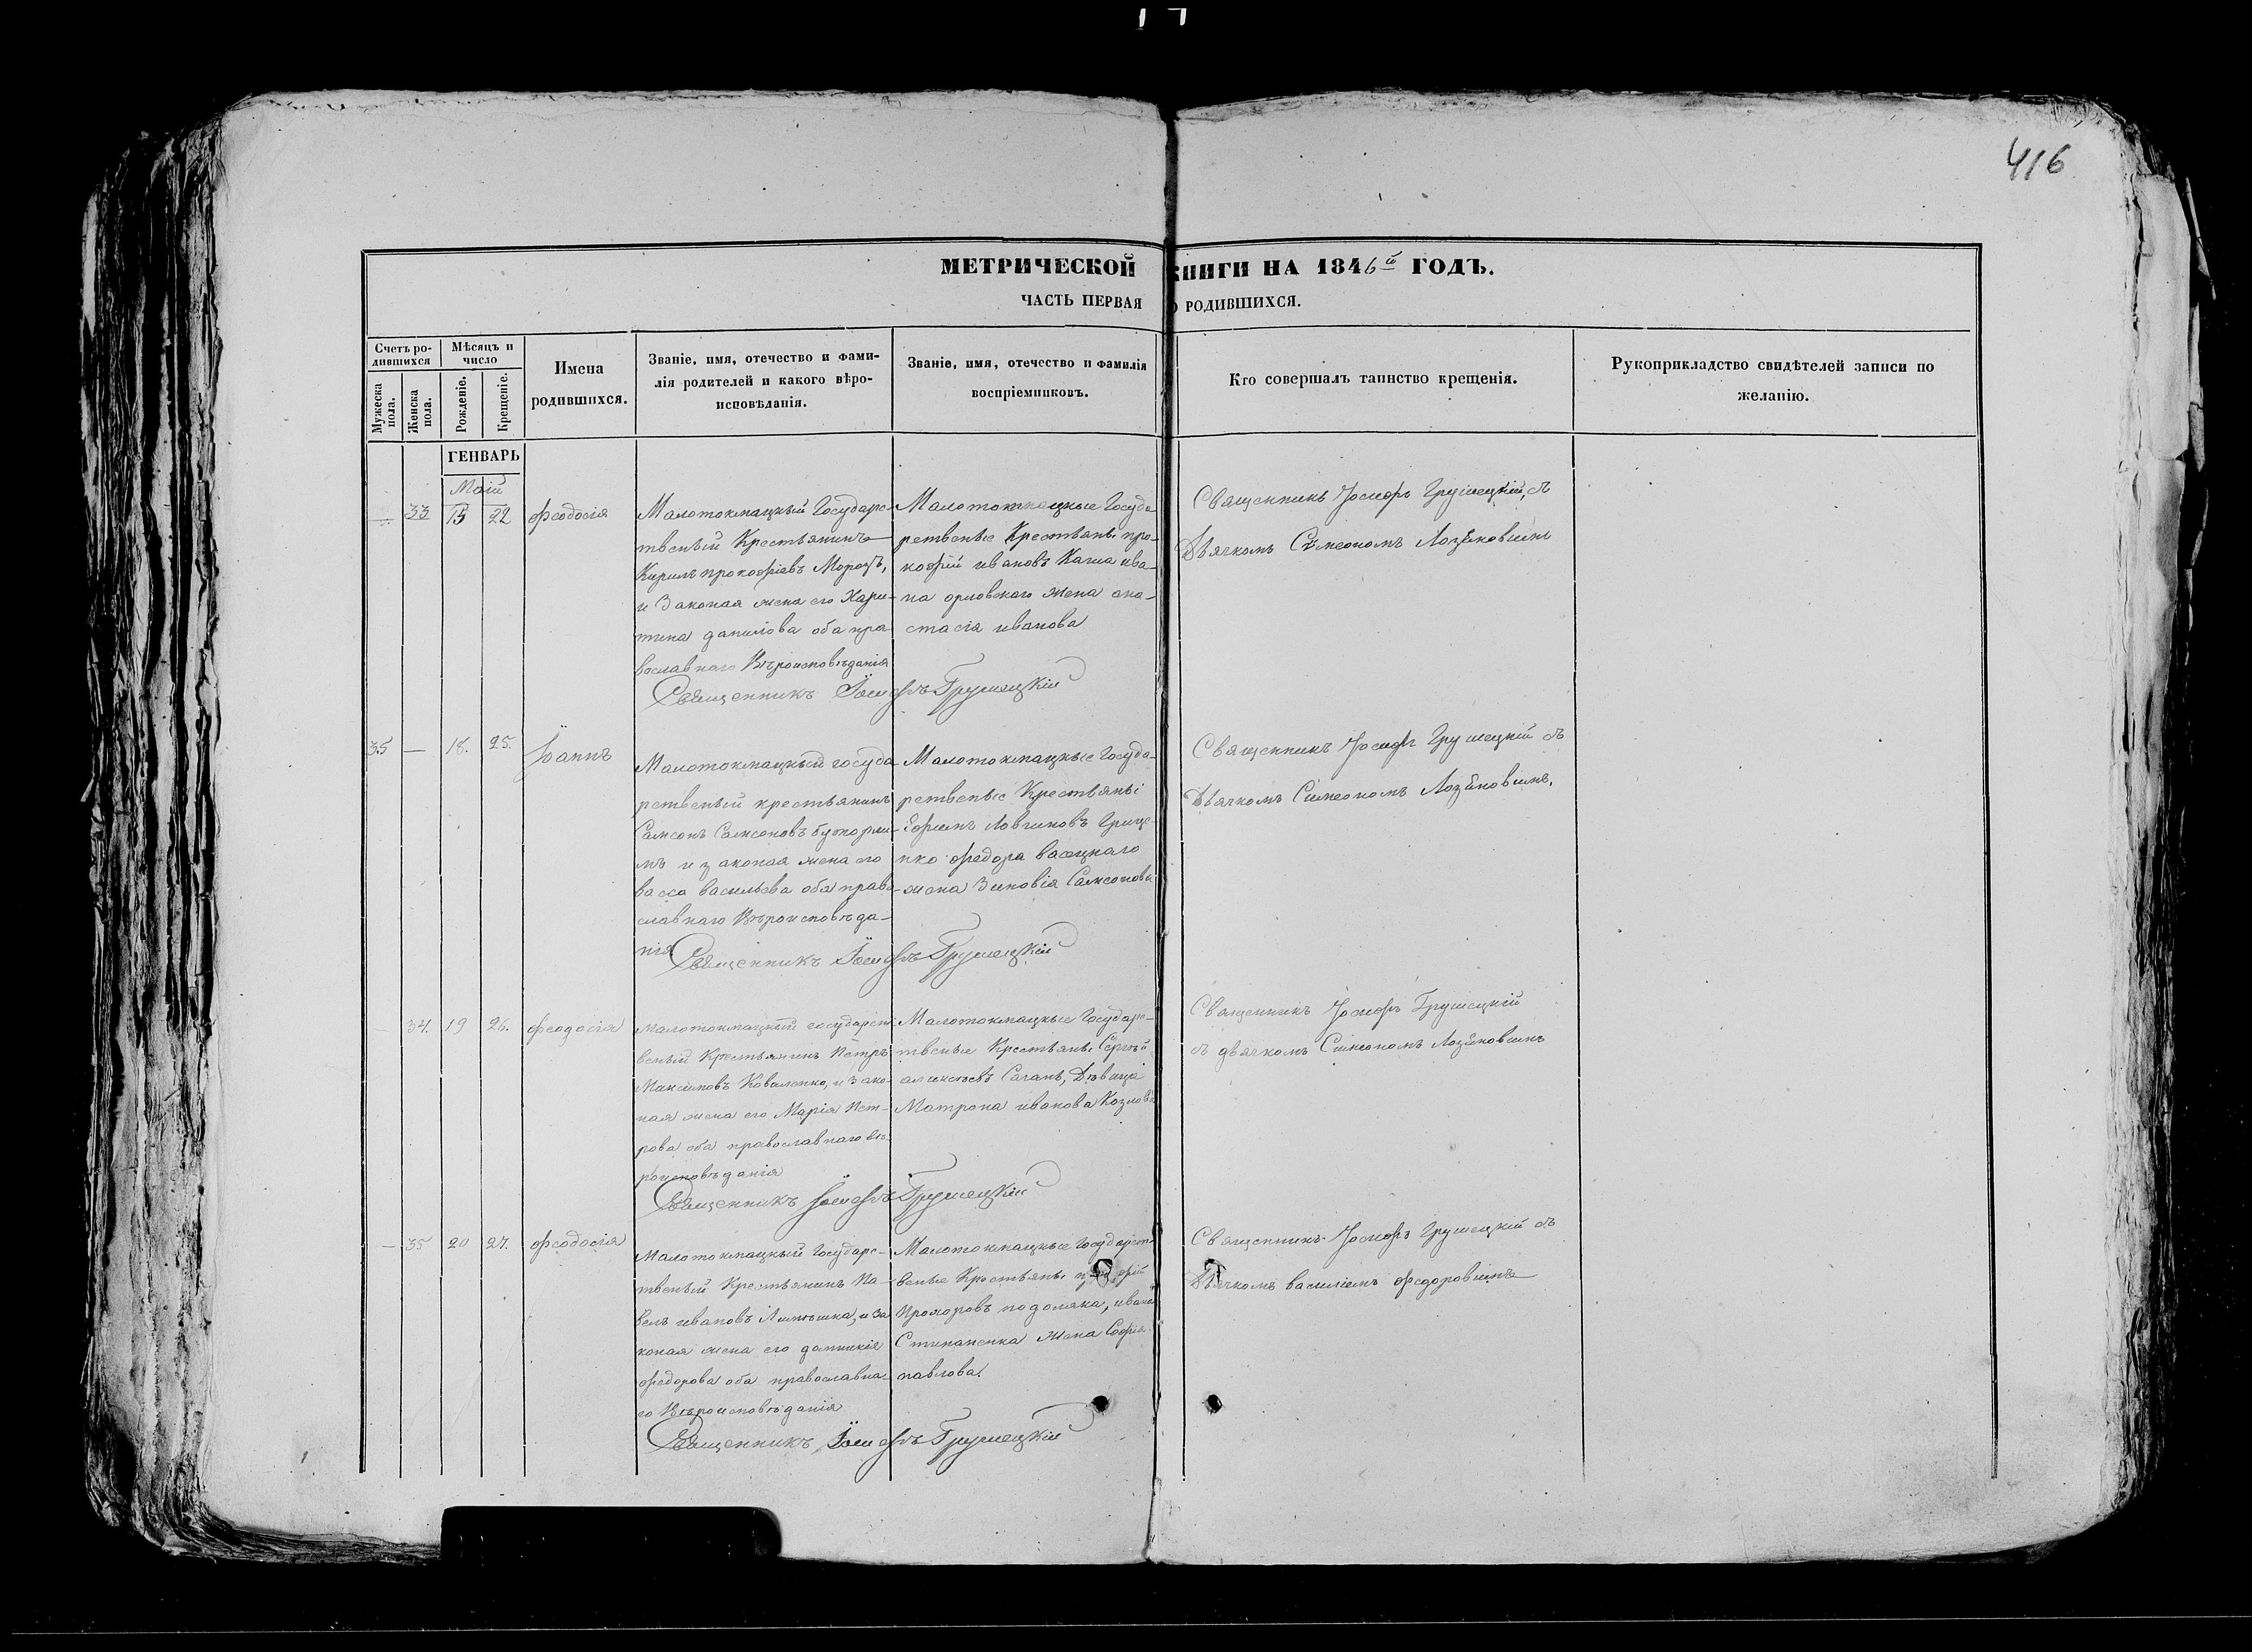 416
МЕТРИЧЕСКОЙ КНИГИ НА 1846й ГОДЪ.
ЧАСТЬ ПЕРВАЯ О РОДИВШИХСЯ.
Счетъ ро-
дившихся
Мѣсяцъ и
число
Мужеска
пола.
Женска
пола.
Рожденіе.
Крещеніе.
Имена
родившихся.
Званіе, имя, отечество и фами-
лія родителей и какого вѣро-
исповѣданія.
Званіе, имя, отечество и фамилія
воспріемниковъ.
Кто совершалъ таинство крещенія.
Рукоприкладство свидѣтелей записи по
желанію.
ГЕНВАРЬ
Май
— 33 15 22 Феодосія
Малотокмацкый Государс-
твеный Крестьянинъ
Кирилъ прокофіевъ Морозъ,
и Законая жена его Хари-
тина данилова оба пра-
вославнаго Вѣроисповѣданія
Малотокмацкые Госуда
рственые Крестьяны про-
кофій ивановъ Каша ива-
на орловскаго жена ана-
стасія иванова
Священникъ Іосифъ Грушецкій, съ
Дьячкомъ Симеономъ Лозановимъ
Священникъ Іосифъ Грушецкій
35 — 18. 25. Іоаннъ
Малотокмацкый госуда
рственый крестьянинъ
Самсонъ Самсоновъ
мъ и законая жена его
васса васильева оба право
славнаго Вѣроисповѣда-
нія
Малотокмацкые Госуда-
рственые Крестьяны
Логвиновъ Грице-
нко федора васецкаго
жена Зиновія Самсонова
Священникъ Іосифъ Грушецкій съ
Дьячкомъ Симеономъ Лозановимъ.
Священникъ Іосифъ Грушецкій
— 34. 19 26. феодосія
Малотокмацкый государст
веный Крестьянинъ Петръ
Максимовъ Коваленко, и Зако-
ная жена его Марія Пет-
рова оба православнаго вѣ-
роисповѣданія
Малотокмацкые Государс-
твеные Крестьяны Сергѣй
алексѣевъ Саганъ, Дѣвица
Матрона иванова Козлова
Священникъ Іосифъ Грушецкій
съ дьячкомъ Симеономъ Лозановимъ
Священникъ Іосифъ Грушецкій
— 35 20 27. феодосія
Малотокмацкый Государс-
твеный Крестьянинъ Па-
велъ ивановъ и За
коная жена его домникія
федорова оба православна-
го Вѣроисповѣданія
Малотокмацкые Государст-
веные Крестьяны
Прохоровъ подоляка, ивана
Степаненка жена Софія
павлова.
Священникъ Іосифъ Грушецкій съ
Дьячкомъ василіемъ федоровимъ
Священникъ Іосифъ Грушецкій